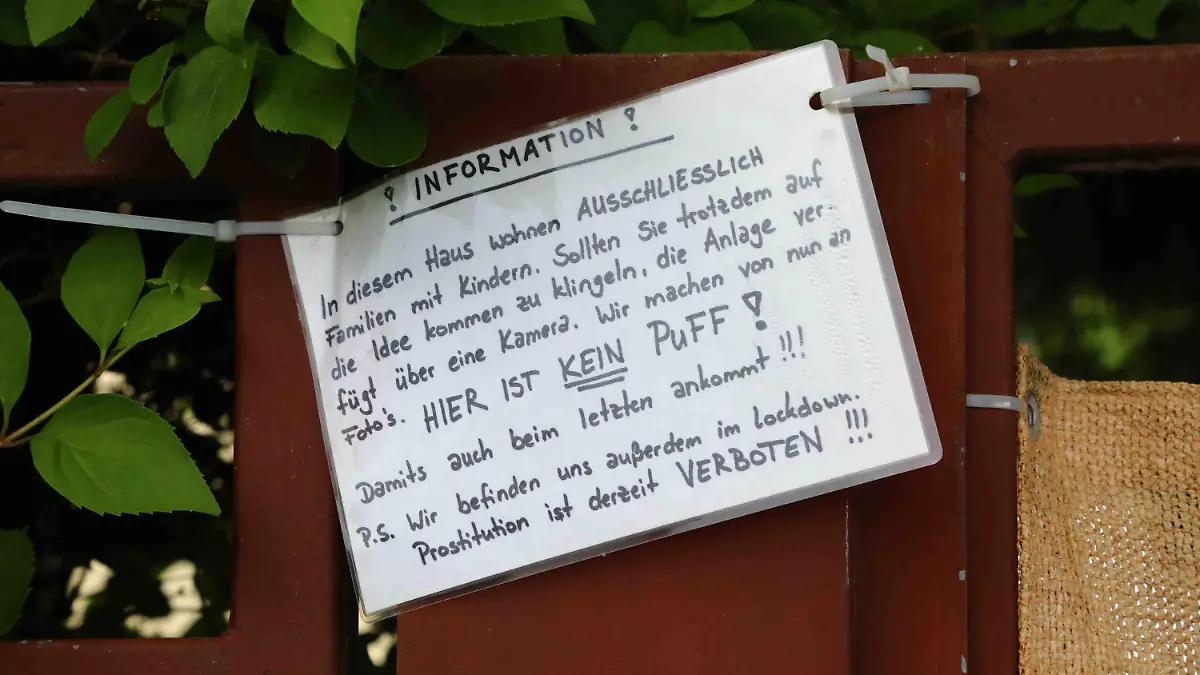 ! INFORMATION !
In diesem Haus wohnen AUSSCHLIESSLICH
Familien mit Kindern. Sollten Sie trotzdem auf
die Idee kommen zu klingeln, die Anlage ver-
fügt über eine Kamera. Wir machen von nun an
Foto's. HIER IST KEIN PUFF !
Damits auch beim letzten ankommt !!!
P.S. Wir befinden uns außerdem im Lockdown.
Prostitution ist derzeit VERBOTEN !!!